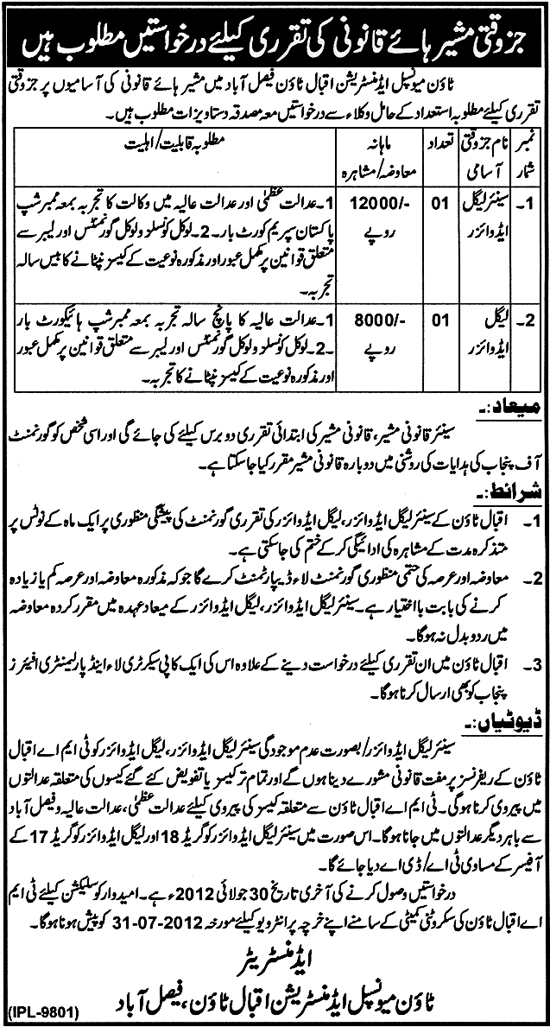 جزوقتی مشیر ہائے قانونی کی تقرری کیلئے درخواستیں مطلوب ہیں
ٹاؤن میونسپل ایڈمنسٹریشن اقبال ٹاؤن فیصل آباد میں مشیر ہائے قانونی کی آسامیوں پر جزوقتی
تقرری کیلئے مطلوبہ استعداد کے حامل وکلاء سے درخواستیں معہ مصدقہ دستاویزات مطلوب ہیں۔
نمبر شمار | نام جزوقتی آسامی | تعداد | ماہانہ معاوضہ/مشاہرہ | مطلوبہ قابلیت/اہلیت
1۔ | سینئر لیگل ایڈوائزر | 01 | 12000/- روپے | 1۔ عدالت عظمیٰ اور عدالت عالیہ میں وکالت کا تجربہ بمعہ ممبر شپ
پاکستان سپریم کورٹ بار۔ 2۔ لوکل کونسلو لوکل گورنمنٹس اور لیبر سے
متعلق قوانین پر مکمل عبور اور مذکورہ نوعیت کے کیسز نپٹانے کا بیس سالہ
تجربہ۔
2۔ | لیگل ایڈوائزر | 01 | 8000/- روپے | 1۔ عدالت عالیہ کا پانچ سالہ تجربہ بمعہ ممبر شپ ہائیکورٹ بار
۔2۔ لوکل کونسلو لوکل گورنمنٹس اور لیبر سے متعلق قوانین پر مکمل عبور
اور مذکورہ نوعیت کے کیسز نپٹانے کا تجربہ۔
میعاد:۔
سینئر قانونی مشیر، قانونی مشیر کی ابتدائی تقرری دو برس کیلئے کی جائے گی اور اسی شخص کو گورنمنٹ
آف پنجاب کی ہدایات کی روشنی میں دوبارہ قانونی مشیر مقرر کیا جا سکتا ہے۔
شرائط:۔
1۔ اقبال ٹاؤن کے سینئر لیگل ایڈوائزر، لیگل ایڈوائزر کی تقرری گورنمنٹ کی پیشگی منظوری پر ایک ماہ کے نوٹس پر
متذکرہ مدت کے مشاہرہ کی ادائیگی کر کے ختم کی جا سکتی ہے۔
2۔ معاوضہ اور عرصہ کی حتمی منظوری گورنمنٹ لاء ڈیپارٹمنٹ کرے گا جو کہ مذکورہ معاوضہ اور عرصہ کم یا زیادہ
کرنے کی بابت بااختیار ہے۔ سینئر لیگل ایڈوائزر، لیگل ایڈوائزر کے میعاد عہدہ میں مقرر کردہ معاوضہ
میں ردوبدل نہ ہوگا۔
3۔ اقبال ٹاؤن میں ان تقرری کیلئے درخواست دینے کے علاوہ اس کی ایک کاپی سیکرٹری لاء اینڈ پارلیمنٹری افیئرز
پنجاب کو بھی ارسال کرنا ہوگا۔
ڈیوٹیاں:۔
سینئر لیگل ایڈوائزر/ بصورت عدم موجودگی سینئر لیگل ایڈوائزر، لیگل ایڈوائزر کو ٹی ایم اے اقبال
ٹاؤن کے ریفرنسز پر مفت قانونی مشورے دینا ہوں گے اور تمام تر کیسز یا تفویض کئے گئے کیسوں کی متعلقہ عدالتوں
میں پیروی کرنا ہوگی۔ ٹی ایم اے اقبال ٹاؤن سے متعلقہ کیسز کی پیروی کیلئے عدالت عظمیٰ، عدالت عالیہ و فیصل آباد
سے باہر دیگر عدالتوں میں جانا ہوگا۔ اس صورت میں سینئر لیگل ایڈوائزر کو گریڈ 18 اور لیگل ایڈوائزر کو گریڈ 17 کے
آفیسر کے مساوی ٹی اے/ ڈی اے دیا جائے گا۔
درخواستیں وصول کرنے کی آخری تاریخ 30 جولائی 2012ء ہے۔ امیدوار کو سلیکشن کیلئے ٹی ایم
اے اقبال ٹاؤن کی سکروٹنی کمیٹی کے سامنے اپنے خرچہ پر انٹرویو کیلئے مورخہ 31-07-2012 کو پیش ہونا ہوگا۔
ایڈمنسٹریٹر
ٹاؤن میونسپل ایڈمنسٹریشن اقبال ٹاؤن، فیصل آباد
(IPL-9801)